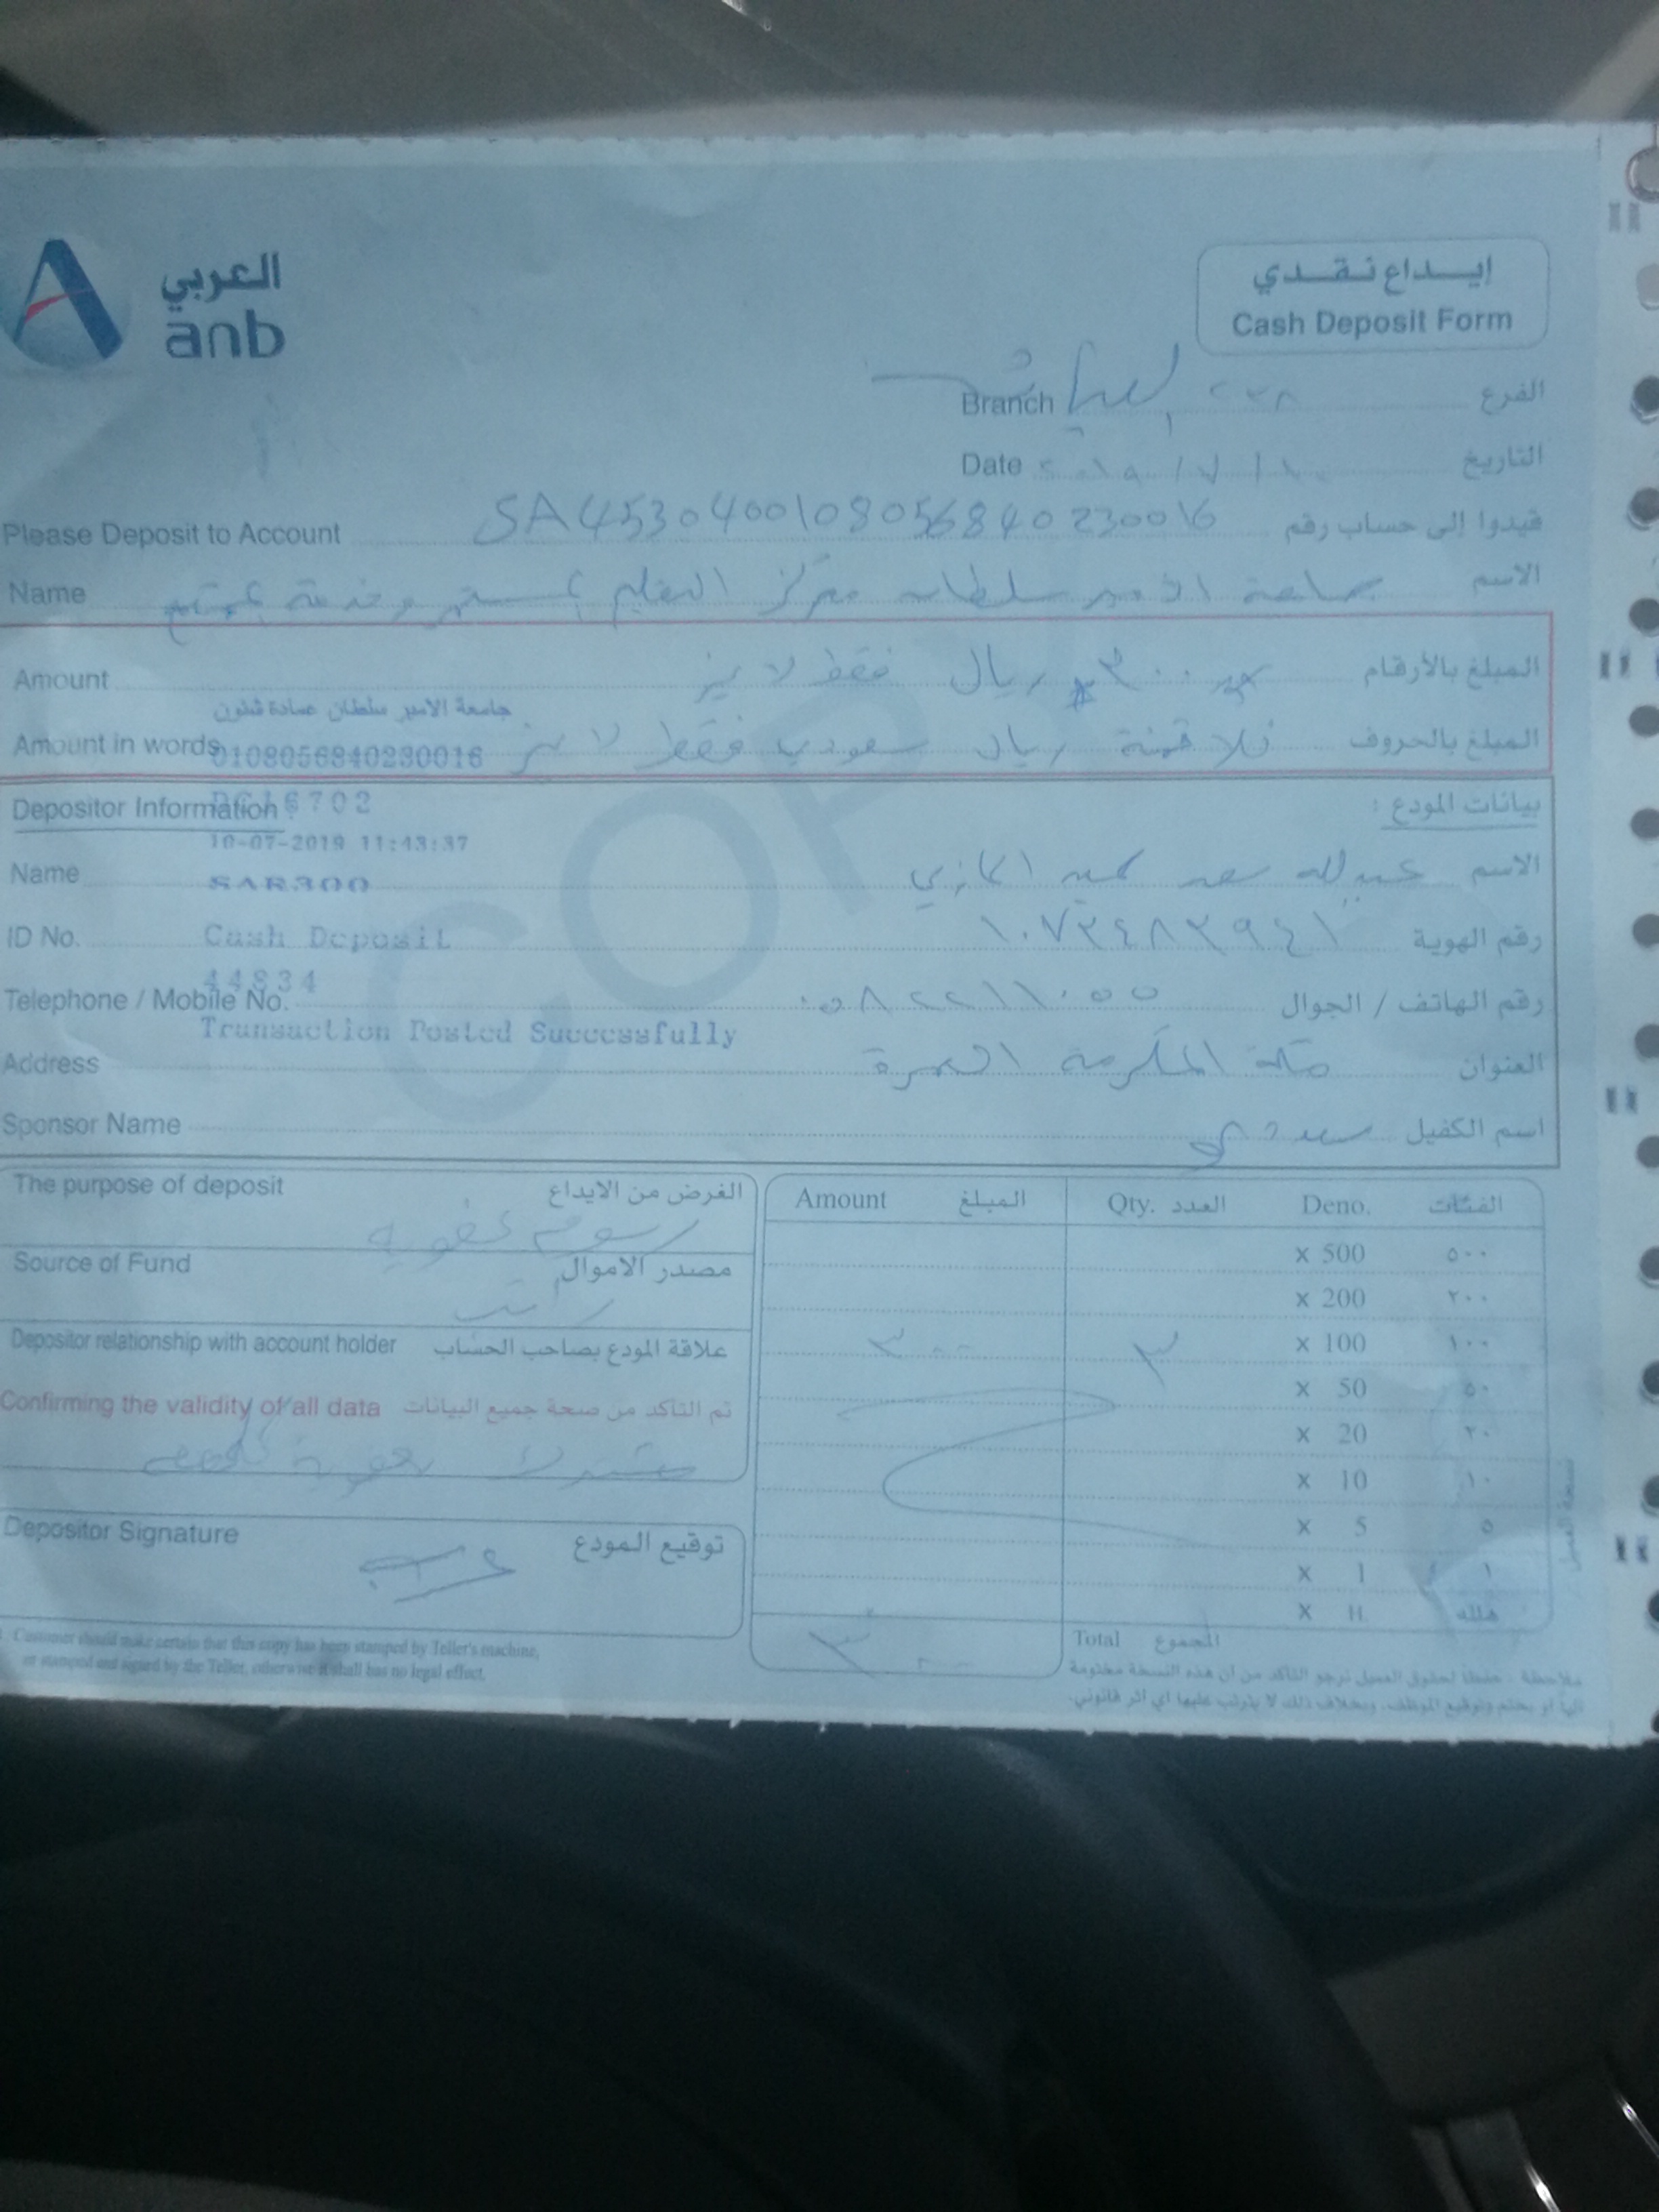 العربي
anb
إيداع نقدي
Cash Deposit Form
Branch ٢٢٨ الفرع
Date ٢٠١٩ / ٧ / ١٠ التاريخ
Please Deposit to Account SA4530400108056840230016 قيدوا إلى حساب رقم
Name جامعة الامير سلطان مركز التعليم وخدمة الاسم
Amount ٣٠٠ ريال فقط لا غير المبلغ بالأرقام
جامعة الامير سلطان عمادة شئون
Amount in words ثلاثمئة ريال سعودي فقط لا غير المبلغ بالحروف
0108056840230016
Depositor Information بيانات المودع :
6702
10-07-2019 11:43:37
Name عبدالله سعد الاسم
SAR300
ID No. ١٠٧٣٤٨٢٩٤١ رقم الهوية
Cash Deposit
44834
Telephone / Mobile No. ٠٥٨٢٢١١٠٥٥ رقم الهاتف / الجوال
Transaction Posted Successfully
Address مكة المكرمة العمرة العنوان
Sponsor Name سعودي اسم الكفيل
The purpose of deposit الغرض من الايداع
رسوم
Source of Fund مصدر الاموال
راتب
Depositor relationship with account holder علاقة المودع بصاحب الحساب
Confirming the validity of all data تم التأكد من صحة جميع البيانات
Depositor Signature توقيع المودع
Amount المبلغ Qty. العدد Deno. الفئات
x 500 ٥٠٠
x 200 ٢٠٠
٣٠٠ ٣ x 100 ١٠٠
x 50 ٥٠
x 20 ٢٠
x 10 ١٠
x 5 ٥
x 1 ١
x H. هللة
٣٠٠ Total المجموع
Customer should make certain that this copy has been stamped by Teller's machine,
or stamped and signed by the Teller, otherwise it shall has no legal effect.
ملاحظة : حفظاً لحقوق العميل نرجو التأكد من أن هذه النسخة مختومة
آلياً أو بختم وتوقيع الموظف، وبخلاف ذلك لا يترتب عليها أي أثر قانوني.
نسخة العميل
COPY